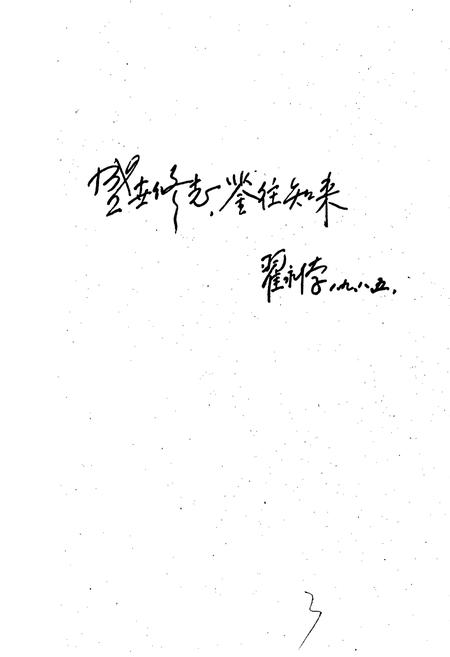 盛世修志，鉴往知来
翟永浡 一九八五，
3